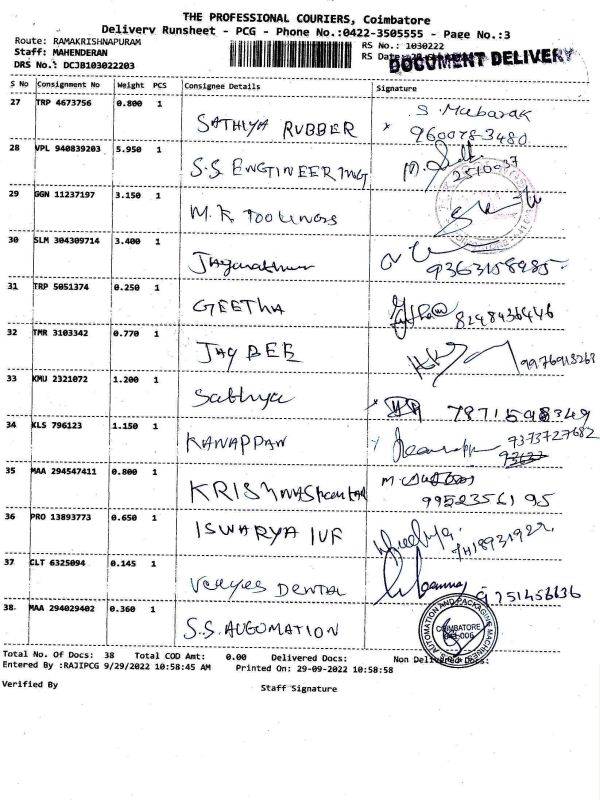 THE PROFESSIONAL COURIERS, Coimbatore
Delivery Runsheet - PCG - Phone No.:0422-3505555 - Page No.:3
Route: RAMAKRISHNAPURAM
RS No.: 1030222
Staff: MAHENDERAN
RS Date:
DOCUMENT DELIVERY
DRS No.: DCJB103022203
S No Consignment No Weight PCS Consignee Details Signature
27 TRP 4673756 0.800 1 SATHIYA RUBBER S. Mubarak
9600783480
28 VPL 940839203 5.950 1 S.S ENGINEERING
2510037
29 GGN 11237197 3.150 1 M.K TOOLINGS
30 SLM 304309714 3.400 1
9363158985
31 TRP 5051374 0.250 1 GEETHA
8248936446
32 TMR 3103342 0.770 1 JAY BEE
9976913263
33 KMU 2321072 1.200 1 Sathya
7871598349
34 KLS 796123 1.150 1 KANAPPAN
9373727682
35 MAA 294547411 0.800 1 KRISHNASHANKAR
9952356195
36 PRO 13893773 0.650 1 ISWARYA IVF
37 CLT 6325094 0.145 1 Veeyes DENTAL
9751456636
38 MAA 294029402 0.360 1 S.S. AUGOMATION
AUTOMATION AND PACKAGING MACHINES
COIMBATORE
641-006
Total No. Of Docs: 38 Total COD Amt: 0.00 Delivered Docs: Non Delivered Docs:
Entered By :RAJIPCG 9/29/2022 10:58:45 AM Printed On: 29-09-2022 10:58:58
Verified By Staff Signature